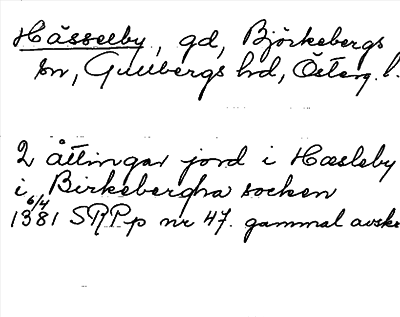 Hässelby, gd, Björkebergs
sn, Gullbergs hd, Österg. l.
2 åttingar jord i Hæsleby
i Birkebergha socken
6/4
1381 SRPp nr 47. gammal avskr